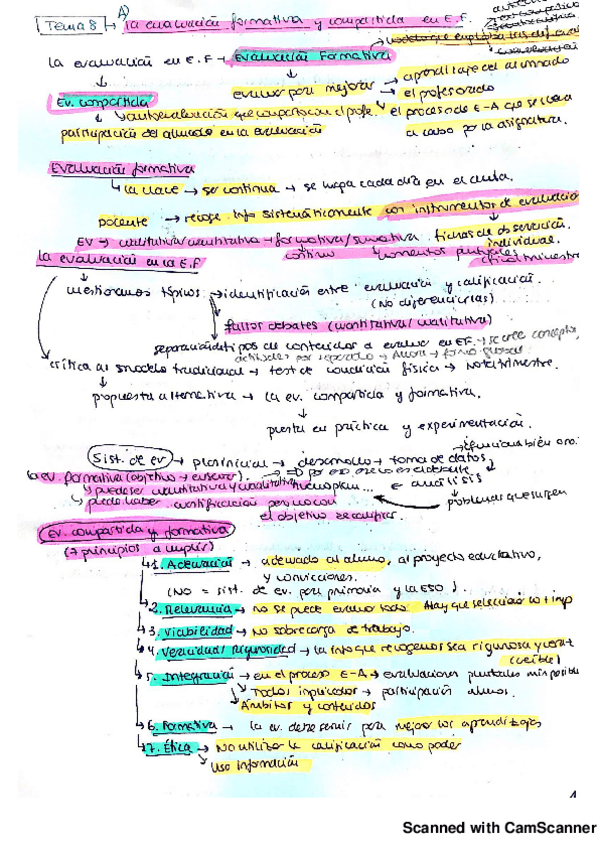 Tema 8 → A) La evaluación formativa y compartida en E.F.
La evaluación en E.F → Evaluación Formativa
Ev. compartida
evaluar para mejorar → aprendizaje del alumnado
→ el profesorado
→ el proceso de E-A que se lleva
a cabo por la asignatura.
autoevaluación que comparto con el profe.
participación del alumno en la evaluación
Evaluación formativa
↳ la clave → ser continua → se hace cada día en el aula.
docente → recoge info sistemáticamente con instrumentos de evaluación
EV → cualitativa/cuantitativa → formativa/sumativa. fichas de observación
individual.
continua momentos puntuales
(final trimestre
La evaluación en la E.F
cuestiones típicas → identificación entre evaluación y calificación.
(No diferenciarlas)
falsos debates (cuantitativa/cualitativa)
separación de tipos de contenidos a evaluar en EF.
crítica al modelo tradicional → test de condición física → nota trimestre.
propuesta alternativa → la ev. compartida y formativa.
puesta en práctica y experimentación.
Sist. de ev → plan inicial → desarrollo → toma de datos
la ev. formativa
puede ser cuantitativa y cualitativa
análisis
puede haber calificación pero no con
problemas que surgen
el objetivo de calificar.
Ev. compartida y formativa
(7 principios a cumplir)
1. Adecuación → adecuado al alumno, al proyecto educativo,
y convicciones.
(NO = sist. de ev. para primaria y la ESO)
2. Relevancia → no se puede evaluar todo. Hay que seleccionar
3. Viabilidad → No sobrecarga de trabajo.
4. Veracidad/Rigurosidad → la info que recogemos sea rigurosa y
(creíble)
5. Integración → en el proceso E-A → evaluaciones puntuales
Todos implicados → participación alumnos.
Ámbitos y contenidos
6. Formativa → la ev. debe servir para mejorar los aprendizajes
7. Ética → No utilizar la calificación como poder
↳ Uso información
Scanned with CamScanner